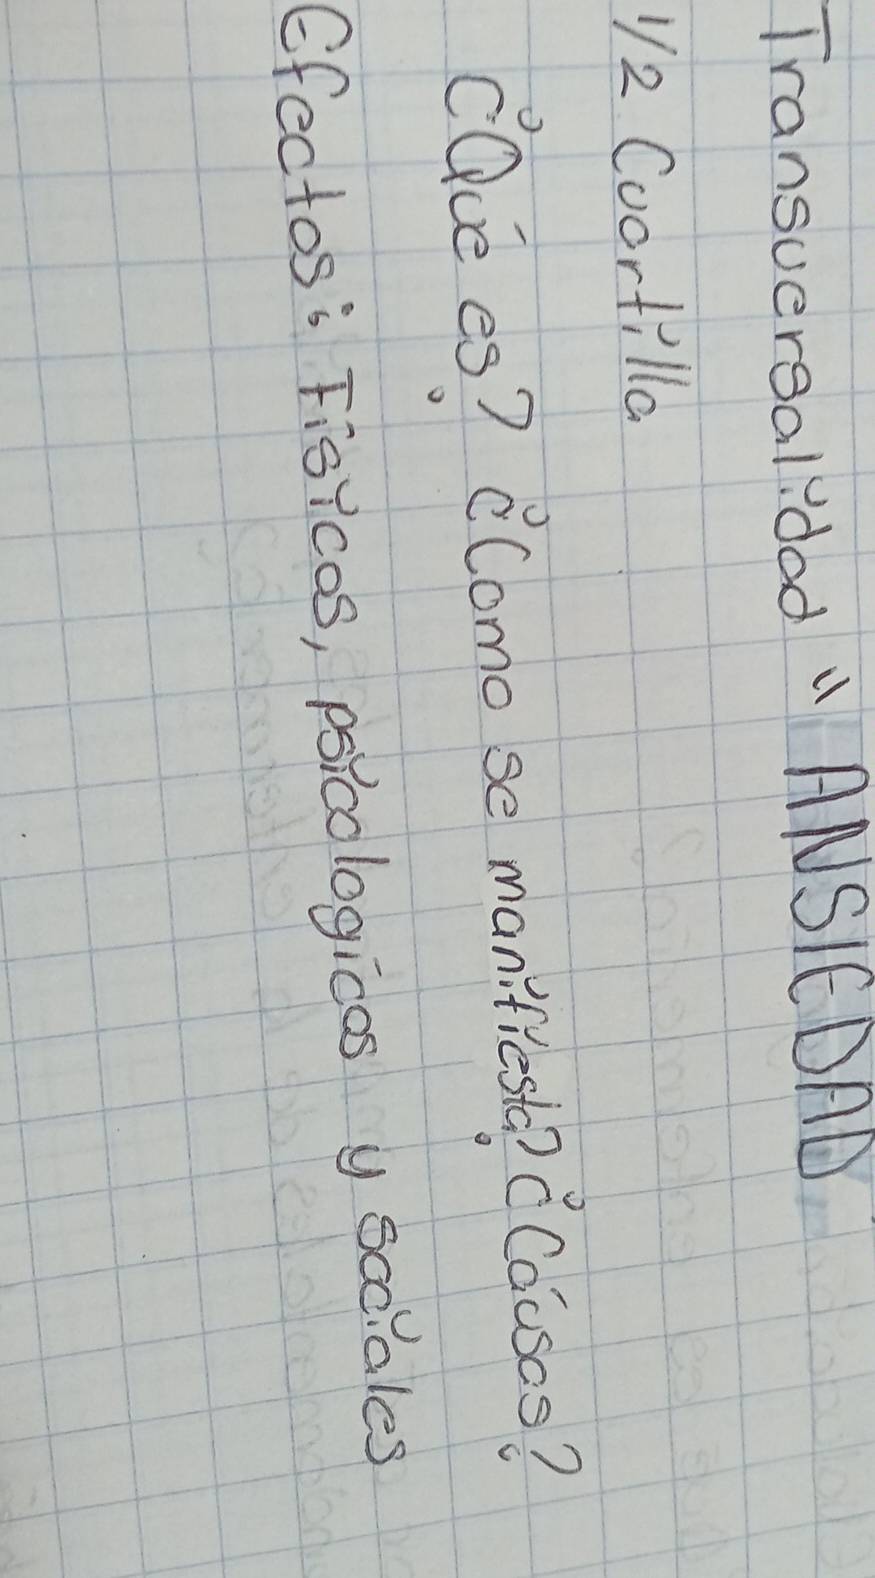 Transversalidad "ANSIEDAD
1/2 Cuartilla
¿Qué es? ¿Como se manifiesta? ¿Cáusas?
Efectos: Físicos, psicologicos y sociales